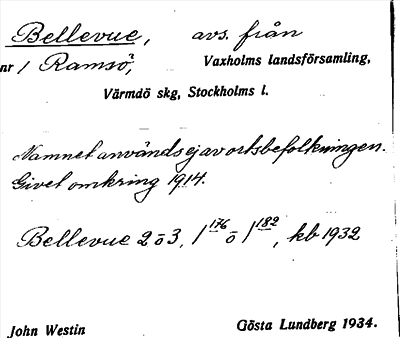 Bellevue, avs. från
nr 1 Ramsö, Vaxholms landsförsamling,
Värmdö skg, Stockholms l.
Namnet användes ej av ortsbefolkningen.
Givet omkring 1914.
Bellevue 2 o 3, 1¹⁷⁶ o 1¹⁸², kb 1932
John Westin Gösta Lundberg 1934.